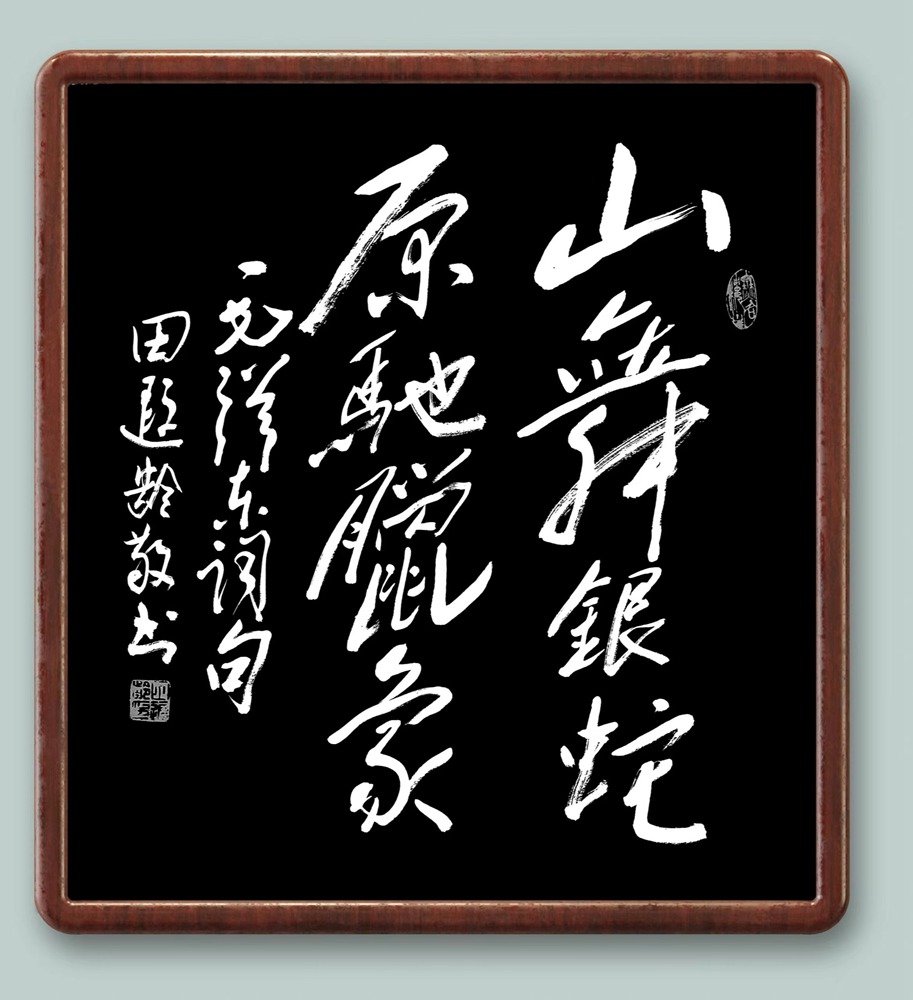 山舞銀蛇
原馳臘象
毛澤东詞句
田遐齡敬书